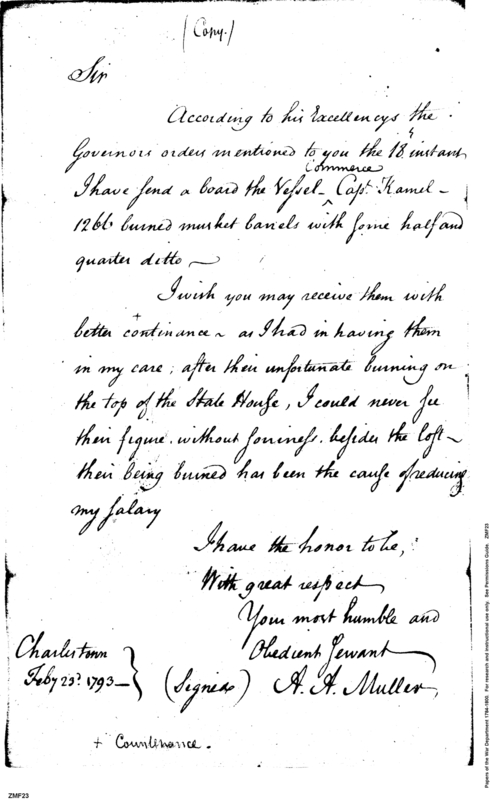 (Copy.)
Sir
According to his Excellencys the
Governors orders mentioned to you the 18th instant
Commerce
I have send a board the Vessel ^ Capt. Kamel –
1266 burned musket barrels with some half and
quarter ditto –
I wish you may receive them with
better + continance – as I had in having them
in my care; after their unfortunate burning on
the top of the State House, I could never see
their figure without sorriness. besides the loss –
their being burned has been the cause of reducing
my salary
I have the honor to be,
With great respect
Your most humble and
Obedient Servant
Charlestown
Feby 23d. 1793 –
(Signed) A. A. Muller,
+ Countenance.
ZMF23
Papers of the War Department 1784-1800. For research and instructional use only. See Permissions Guide. ZMF23